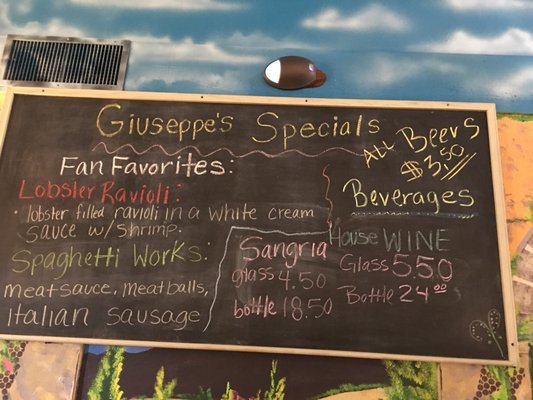 Giuseppe's Specials
Fan Favorites:
Lobster Ravioli:
· lobster filled ravioli in a white cream
sauce w/ shrimp.
Spaghetti Works:
meatsauce, meatballs,
Italian sausage
Sangria
glass 4.50
bottle 18.50
ALL Beers
$3.50
Beverages
House WINE
Glass 5.50
Bottle 24.00